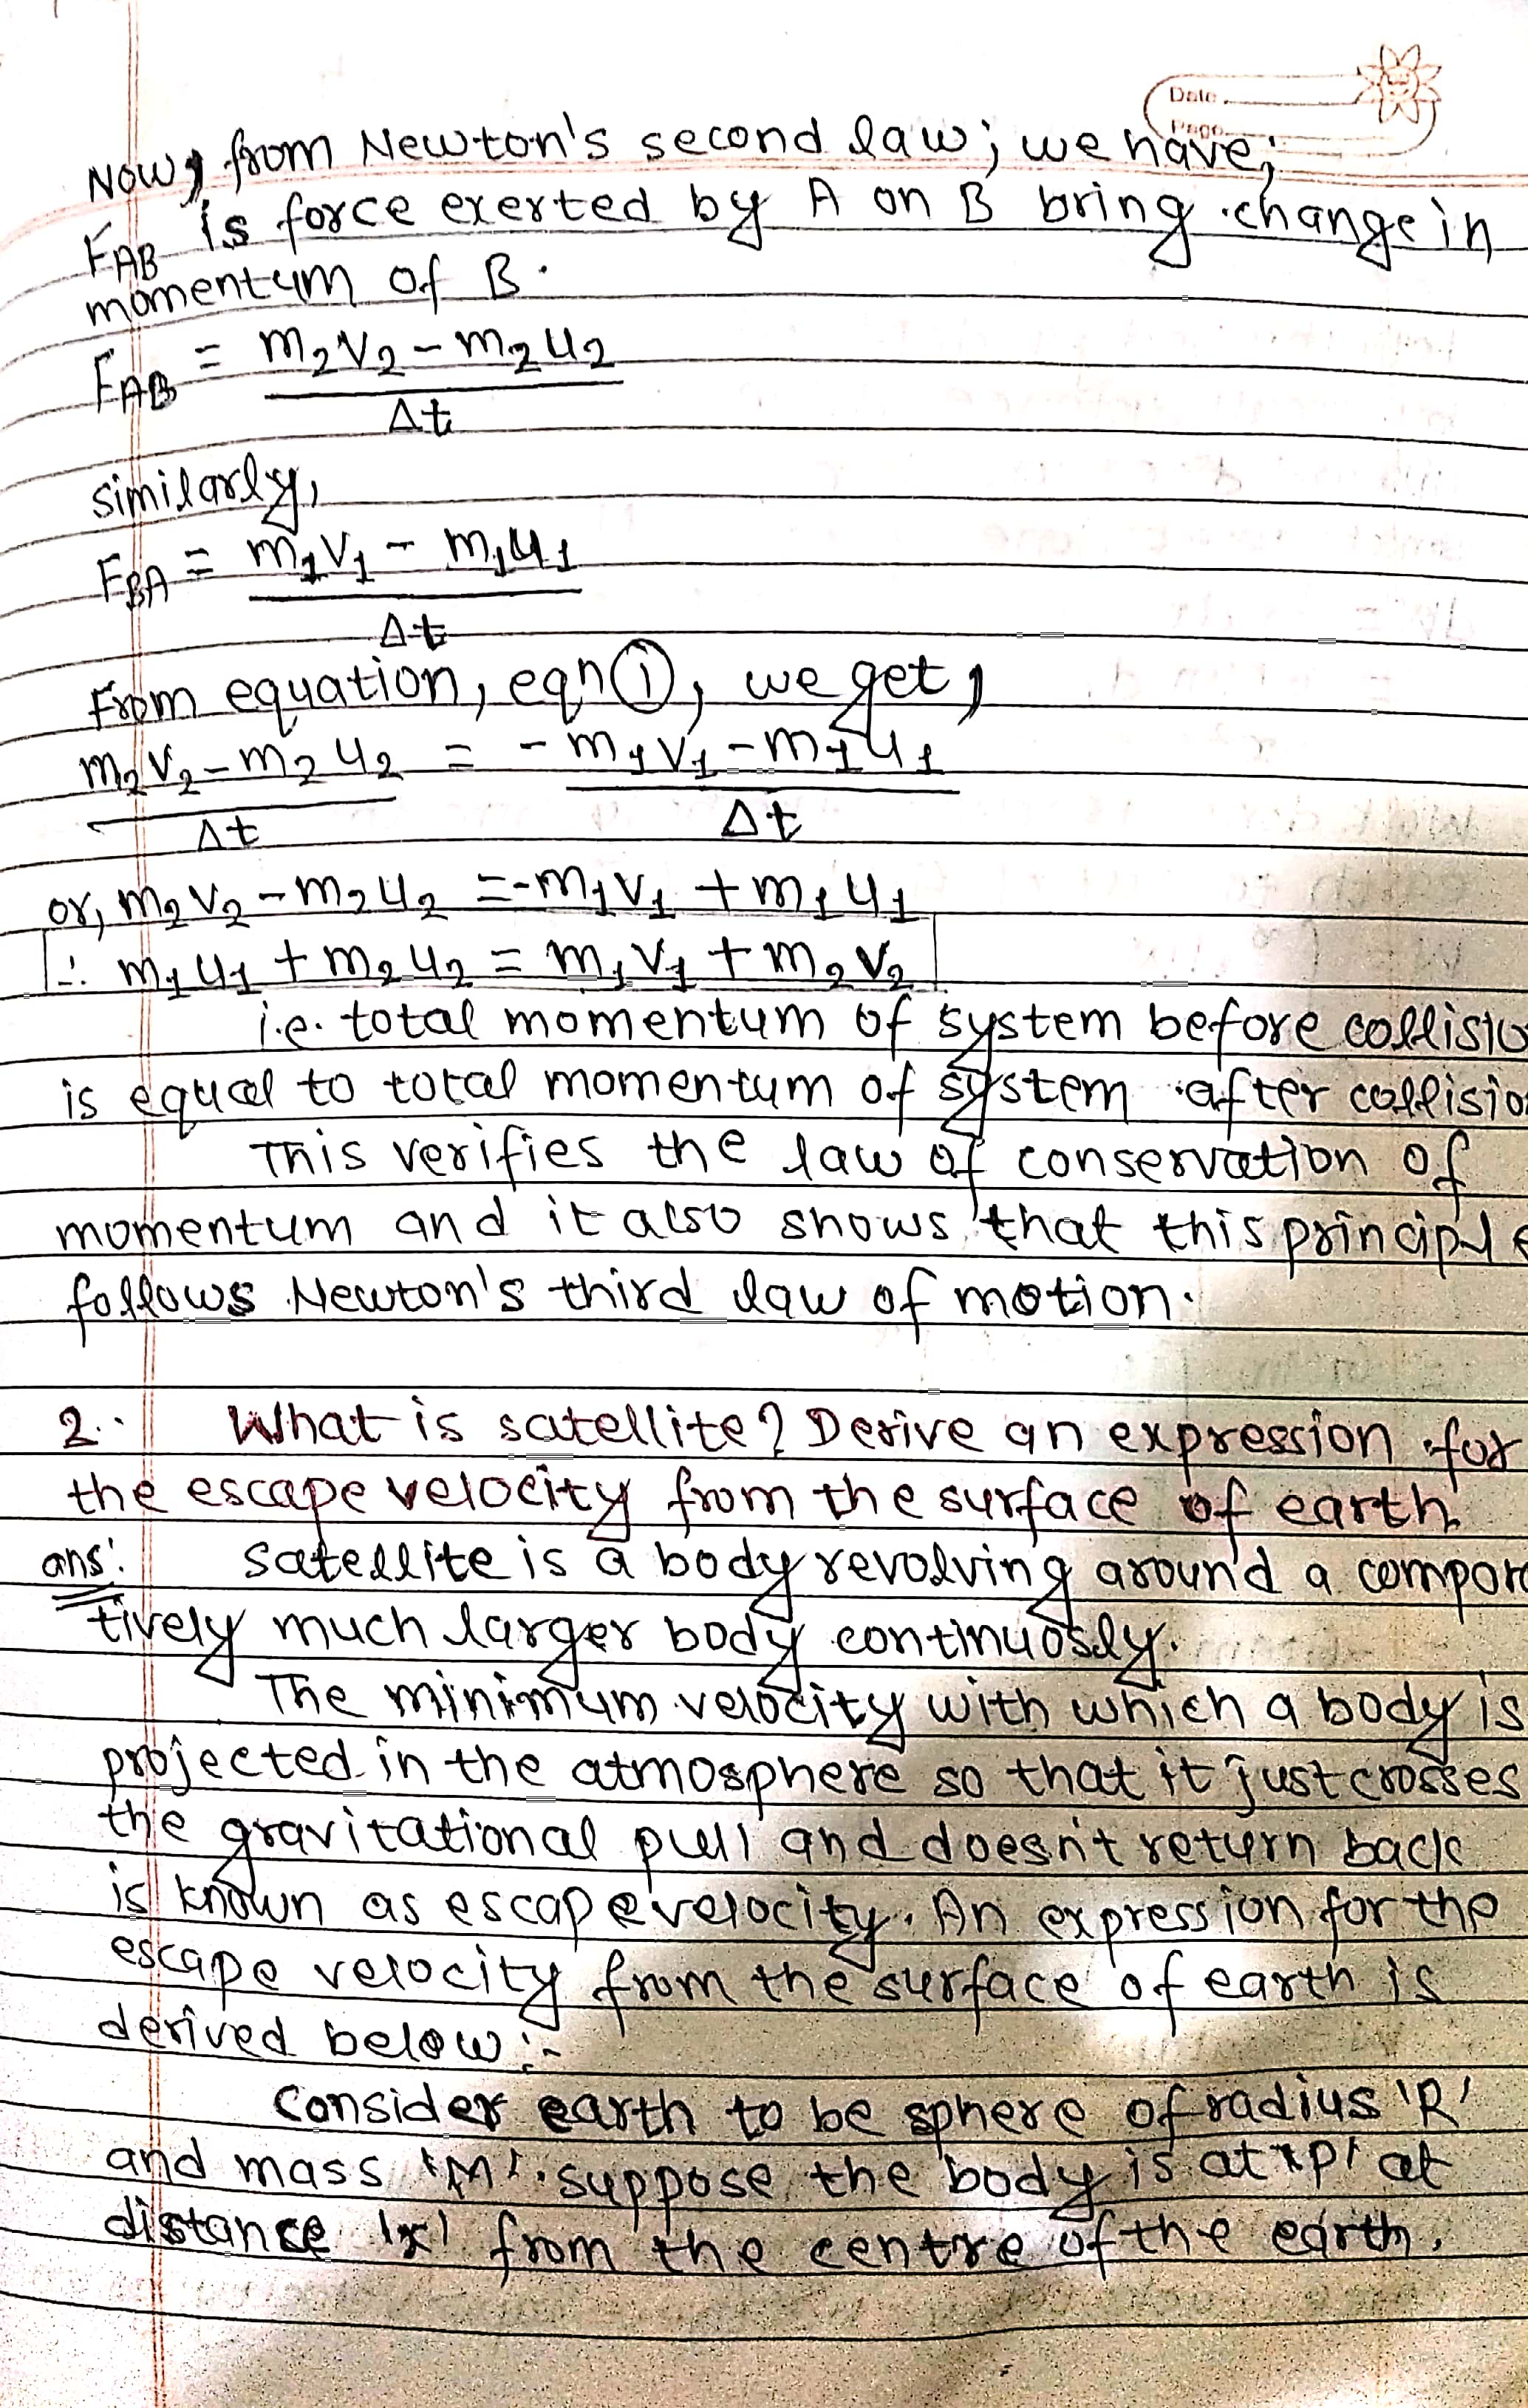 Date
Page
Now, from Newton's second law; we have;
FAB is force exerted by A on B bring change in
momentum of B.
FAB = m2v2 - m2u2
Δt
similarly,
FBA = m1v1 - m1u1
Δt
From equation, eqn ①, we get,
m2v2 - m2u2 = - m1v1 - m1u1
Δt Δt
or, m2v2 - m2u2 = -m1v1 + m1u1
∴ m1u1 + m2u2 = m1v1 + m2v2
i.e. total momentum of system before collisio
is equal to total momentum of system after collisio
This verifies the law of conservation of
momentum and it also shows that this principle
follows Newton's third law of motion.
2. What is satellite? Derive an expression for
the escape velocity from the surface of earth.
ans: Satellite is a body revolving around a compara
tively much larger body continuosly.
The minimum velocity with which a body is
projected in the atmosphere so that it just crosses
the gravitational pull and doesn't return back
is known as escape velocity. An expression for the
escape velocity from the surface of earth is
derived below:-
Consider earth to be sphere of radius 'R'
and mass 'M'. suppose the body is at 'p' at
distance 'x' from the centre of the earth.